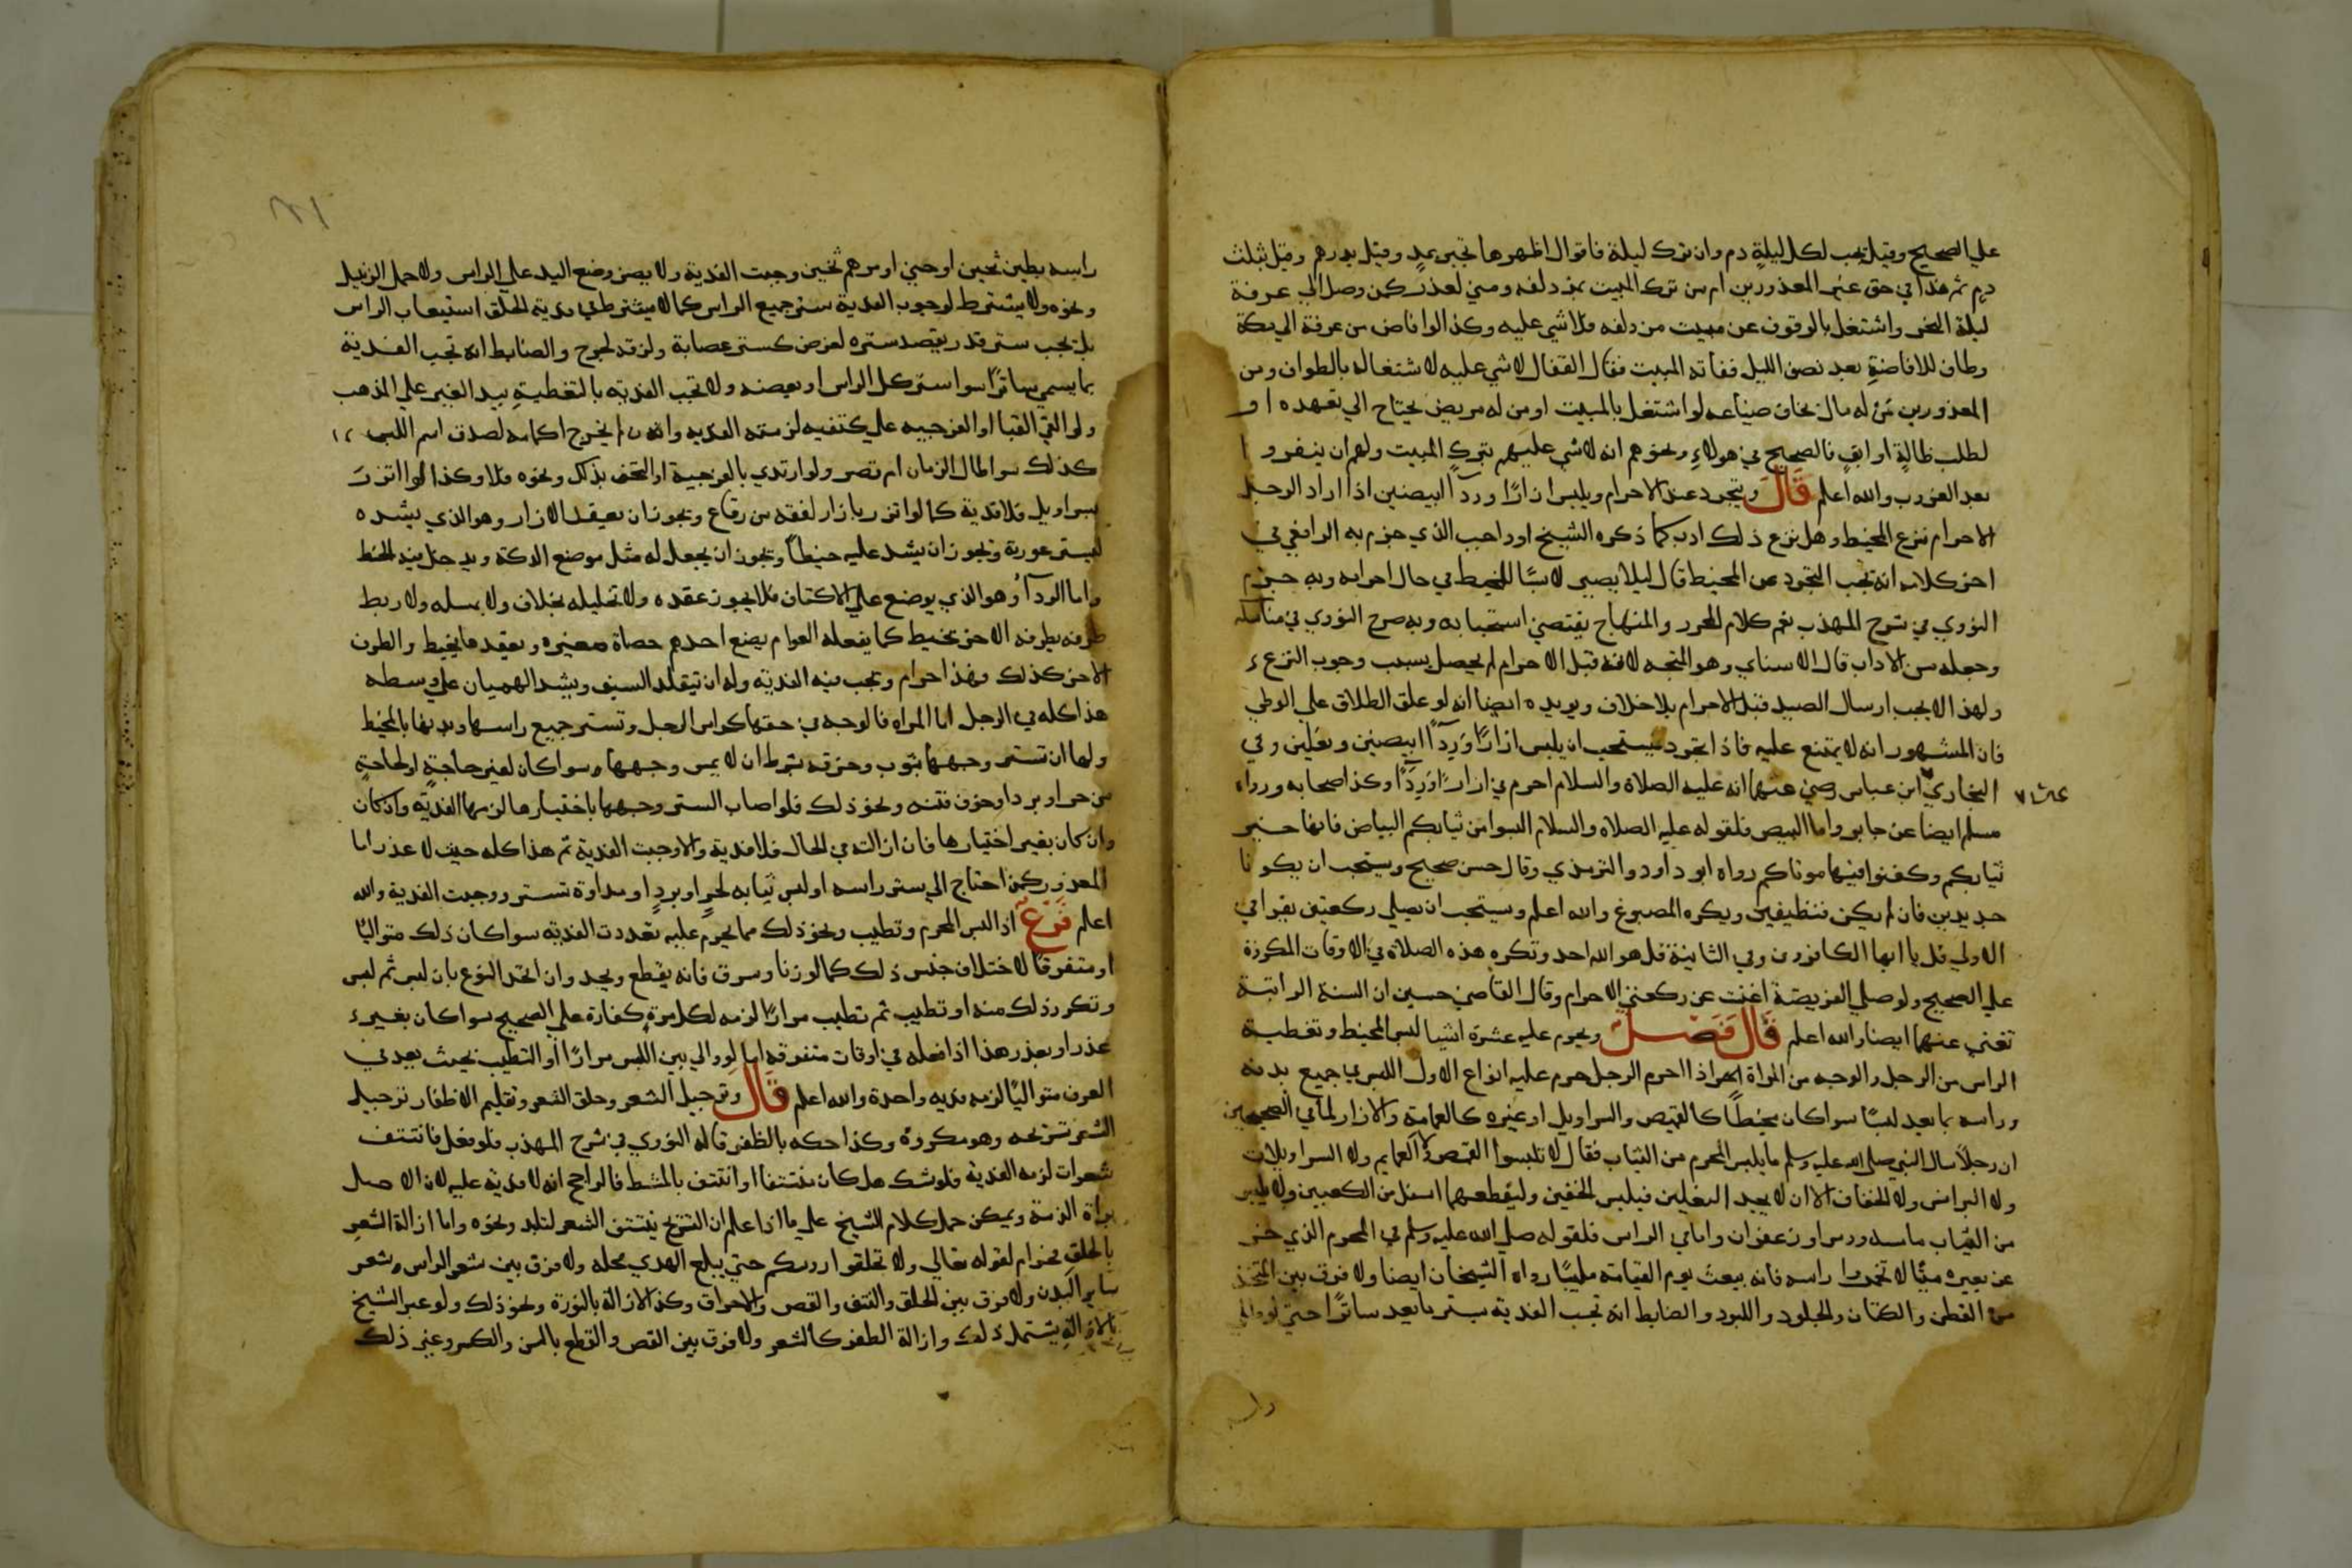 علي الصحيح وقيل يجب لكل ليلة دم وان ترك ليلة فاقوال اظهرها تجبر بمد وقيل بدرهم وقيل بثلث
دم ثم هذا في حق غير المعذورين ام من ترك المبيت بمزدلفه ومني لعذر كمن وصل الي عرفة
ليلة النحر واشتغل بالوقوف عن مبيت مزدلفه فلا شي عليه وكذا لو افاض من عرفة الي مكة
وطاف للافاضة بعد نصف الليل ففاته المبيت فقال القفال لا شي عليه لاشتغاله بالطواف ومن
المعذورين من له مال يخاف ضياعه لو اشتغل بالمبيت او من له مريض يحتاج الي تعهده او
لطلب ضالة او ابق فالصحيح في هولاء ونحوهم انه لا شي عليهم بترك المبيت ولهم ان ينفروا
بعد الغروب والله اعلم قال ويتجرد عند الاحرام ويلبس ازارًا وردآ ابيضين اذا اراد الرجل
الاحرام نزع المخيط وهل نزع ذلك ادب كما ذكره الشيخ او واجب الذي جزم به الرافعي في
اخر كلامه انه يجب التجرد عن المخيط قال ليلا يصير لابسًا للمخيط في حال احرامه وبه جزم
النووي في شرح المهذب نعم كلام المحرر والمنهاج يقتضي استحبابه وبه صرح النووي في مناسكه
وجعله من الاداب قال الاسناي وهو المتجه لانه قبل الاحرام لم يحصل سبب وجوب النزع
ولهذا لا يجب ارسال الصيد قبل الاحرام بلا خلاف ويويده ايضا انه لو علق الطلاق علي الوطي
فان المشهور انه لا يمتنع عليه فاذا تجرد فيستحب ان يلبس ازارًا وردآ ابيضين ونعلين وفي
البخاري ابن عباس رضي عنهما انه عليه الصلاة والسلام احرم في ازار وردآ وكذا اصحابه ورواه
مسلم ايضا عن جابر واما البيض فلقوله عليه الصلاه والسلام البسوا من ثيابكم البياض فانها خير
ثيابكم وكفنوا فيها موتاكم رواه ابو داود والترمذي وقال حسن صحيح ويستحب ان يكونا
جديدين فان لم يكن فنظيفين ويكره المصبوغ والله اعلم ويستحب ان يصلي ركعتين يقرا في
الاولي قل يا ايها الكافرون وفي الثانية قل هو الله احد وتكره هذه الصلاة في الاوقات المكروهة
علي الصحيح ولو صلي الفريضة اغنت عن ركعتي الاحرام وقال القاضي حسين ان السنة الراتبة
تغني عنهما ايضا والله اعلم قال فصل ويحرم عليه عشرة اشيا لبس المخيط وتغطية
الراس من الرجل والوجه من المراة اذا احرم الرجل حرم عليه انواع الاول اللبس في جميع بدنه
وراسه بما يعد لبسًا سوا كان مخيطًا كالقميص والسراويل او غيره كالعمامة والازار لما في الصحيحين
ان رجلًا سال النبي صلي الله عليه وسلم ما يلبس المحرم من الثياب فقال لا تلبسوا القمص ولا العمايم ولا السراويلات
ولا البرانس ولا الخفاف الا ان لا يجد النعلين فيلبس الخفين وليقطعهما اسفل من الكعبين ولا يلبس
من الثياب ما مسه ورس او زعفران واما في الراس فلقوله صلي الله عليه وسلم في المحرم الذي خر
عن بعيره ميتًا لا تخمروا راسه فانه يبعث يوم القيامة ملبيًا رواه الشيخان ايضا ولا فرق بين المتخذ
من القطن والكتان والجلود واللبود والضابط انه تجب الفدية بستر ما يعد ساترًا حتي لو طلي
راسه بطين ثخين او حني او مرهم ثخين وجبت الفدية ولا يضر وضع اليد علي الراس ولا حمل الزنبيل
ونحوه ولا يشترط لوجوب الفدية ستر جميع الراس كما لا يشترط في فدية الحلق استيعاب الراس
بل تجب ستر قدر يقصد ستره لغرض كستر عصابة ولزقه لجرح والضابط انه تجب الفدية
بما يسمي ساترًا سوا ستر كل الراس او بعضه ولا تجب الفديه بالتغطية بيد الغير علي المذهب
ولو القي القبا او الفرجيه علي كتفيه لزمته الفديه وان لم يخرج اكمامه لصدق اسم اللبس
كذلك سوا طال الزمان ام قصر ولو ارتدي بالفرجية او التحف بذلك ونحوه فلا وكذا لو اتزر
بسراويل فلا فدية كما لو اتزر بازار لفقه من رقاع ويجوز ان يعقد الازار وهو الذي يشده
ليستر عورته ويجوز ان يشد عليه خيطًا ويجوز ان يجعل له مثل موضع الدكة ويدخل فيه الخيط
واما الردآ وهو الذي يوضع علي الاكتاف فلا يجوز عقده ولا تخليله بخلاف ولا بمسله ولا ربط
طرفه بطرفه الاخر بخيط كما يفعله العوام يضع احدهم حصاة صغيره ويعقدها بخيط والطرف
الاخر كذلك فهذا حرام وتجب فيه الفدية وله ان يتقلد السيف ويشد الهميان علي وسطه
هذا كله في الرجل اما المراه فالوجه في حقها كراس الرجل وتستر جميع راسها وبدنها بالمخيط
ولها ان تستر وجهها بثوب وخرقه بشرط ان لا يمس وجهها وسوا كان لغير حاجة او لحاجة
من حر او برد او خوف فتنه ونحو ذلك فلو اصاب الستر وجهها باختيارها لزمها الفدية وان كان
وان كان بغير اختيارها فان ازالته في الحال فلا فدية والا وجبت الفدية ثم هذا كله حيث لا عذر اما
المعذور كمن احتاج الي ستر راسه او لبس ثيابه لحر او برد او مداواة تستر ووجبت الفدية والله
اعلم فرع اذا لبس المحرم وتطيب ونحو ذلك مما يحرم عليه تعددت الفديه سوا كان ذلك متواليًا
او متفرقًا لاختلاف جنس ذلك كما لو زنا وسرق فانه يقطع ويحد وان اتحد النوع بان لبس ثم لبس
وتكرر ذلك منه او تطيب ثم تطيب مرارًا لزمه لكل مرة كفارة علي الصحيح سوا كان بغير
عذر او بعذر هذا اذا فعله في اوقات متفرقه اما لو والي بين اللبس مرارًا او التطيب بحيث يعد في
العرف متواليًا لزمه فديه واحدة والله اعلم قال وترجيل الشعر وحلق الشعر وتقليم الاظفار ترجيل
الشعر تسريحه وهو مكروه وكذا حكه بالظفر قاله النووي في شرح المهذب فلو فعل فانتتف
شعرات لزمه الفدية فلو شك هل كان منتتفا او انتتف بالمشط فالراجح انه لا فدية عليه لان الاصل
براة الذمة ويمكن حمل كلام الشيخ علي ما اذا علم ان التسريح ينتتف الشعر لتلبد ونحوه واما ازالة الشعر
بالحلق فحرام لقوله تعالي ولا تحلقوا روسكم حتي يبلغ الهدي محله ولا فرق بين شعر الراس وشعر
ساير البدن ولا فرق بين الحلق والنتف والقص والاحراق وكذا الازالة بالنورة ونحو ذلك ولو عبر الشيخ
بالازالة يشتمل ذلك وازالة الظفر كالشعر ولا فرق بين القص والقطع بالسن والكسر وغير ذلك